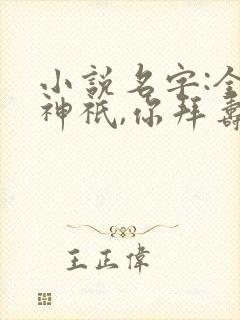 小說名字:全
神祇,你拜壽
王正偉